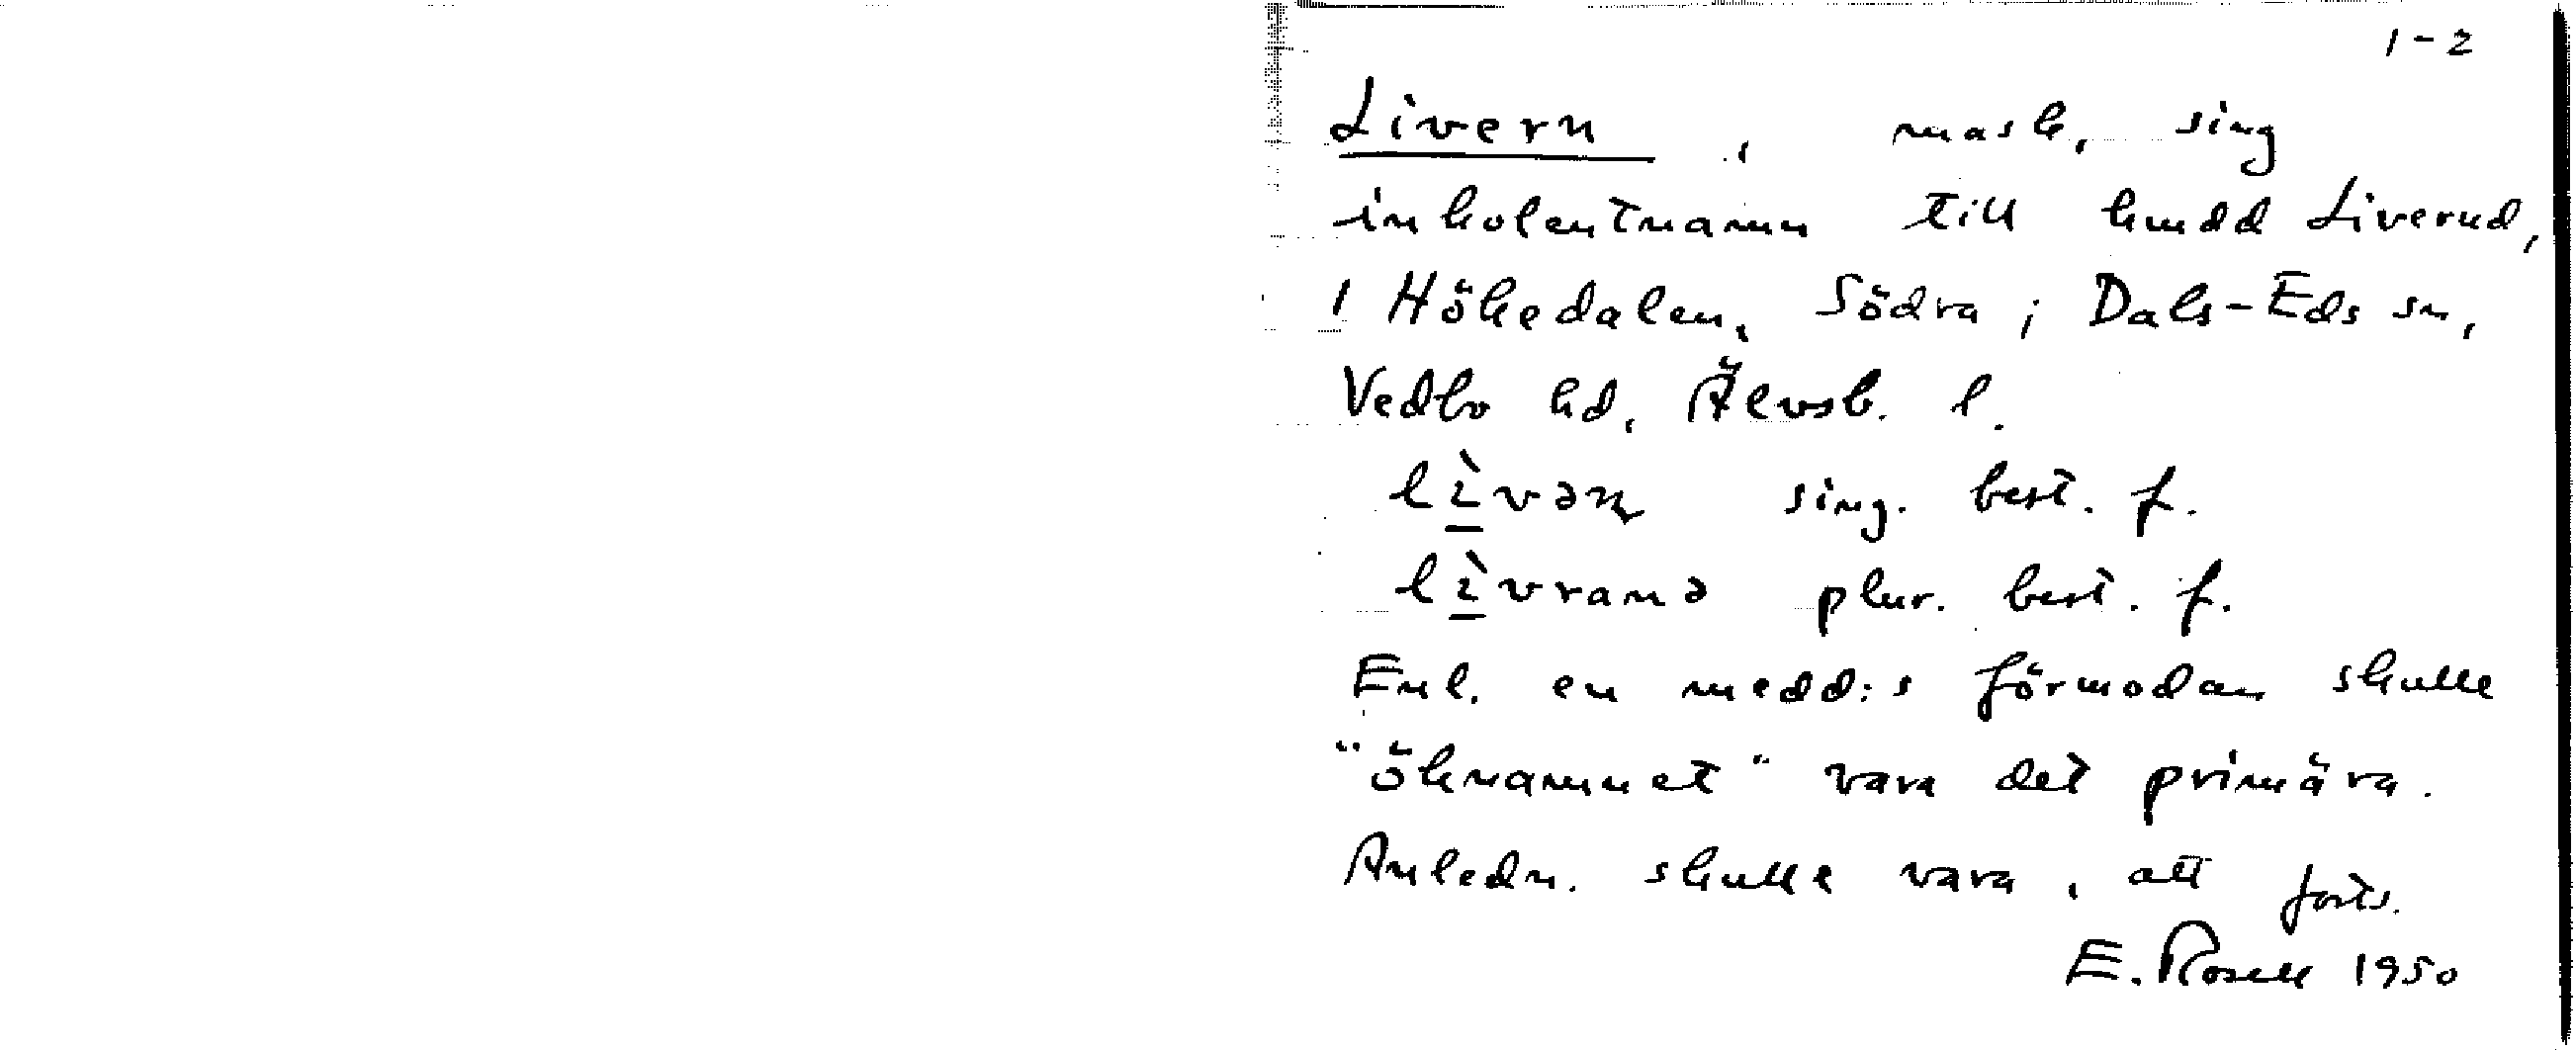 1-2
Livern, mask, sing
inkolentnamn till hmdd Liverud,
1 Hökedalen, Södra i Dals-Eds sn,
Vedbo hd, Älvsb. l.
lìvəɳ sing. best. f.
lìvranə plur. best. f.
Enl. en medd:s förmodan skulle
"öknamnet" vara det primära.
Anledn. skulle vara, att forts.
E. Rosell 1950